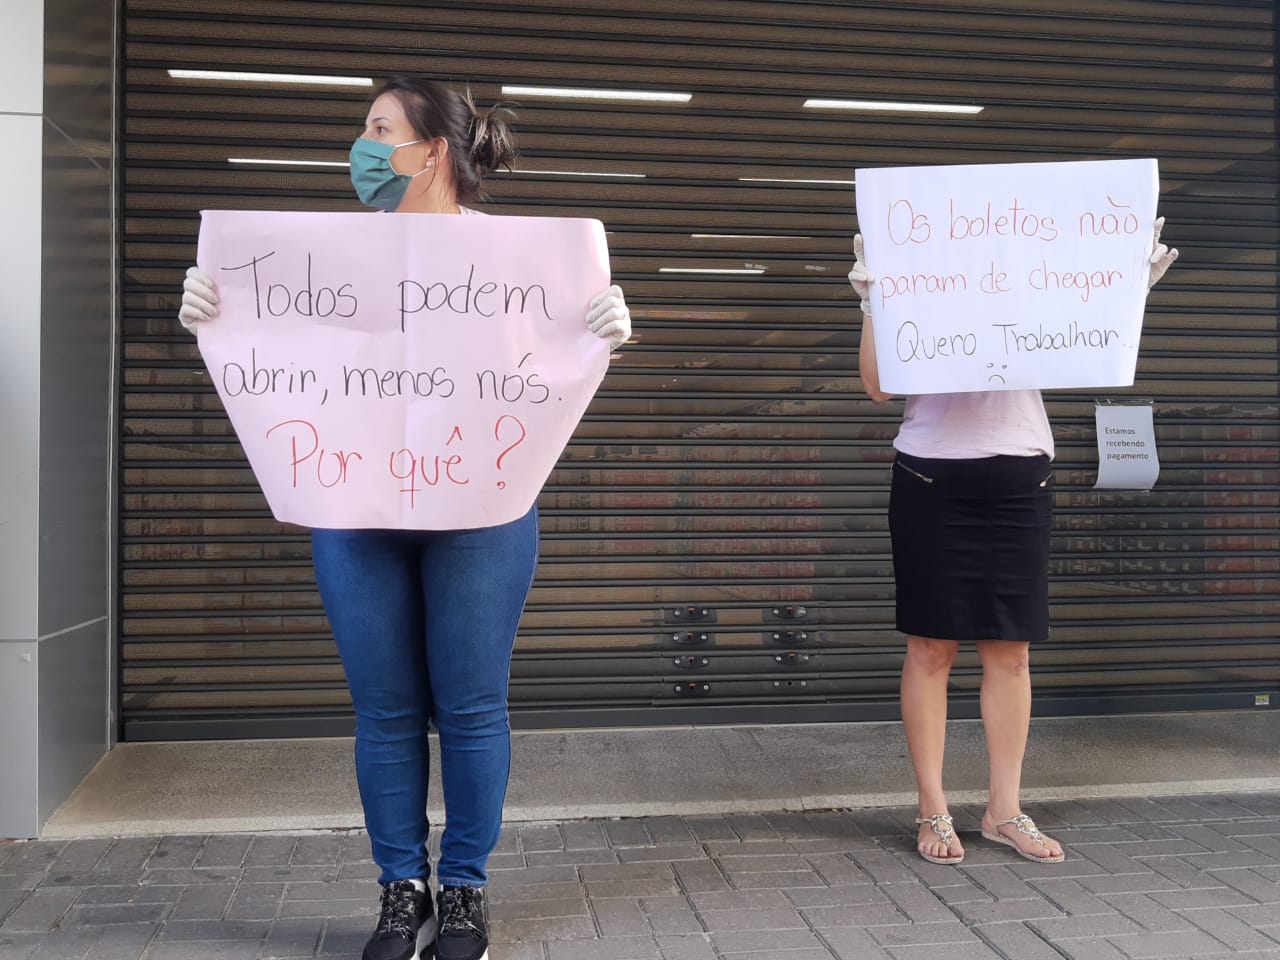 Todos podem
abrir, menos nós.
Por quê?
Os boletos não
param de chegar
Quero Trabalhar...
Estamos
recebendo
pagamento